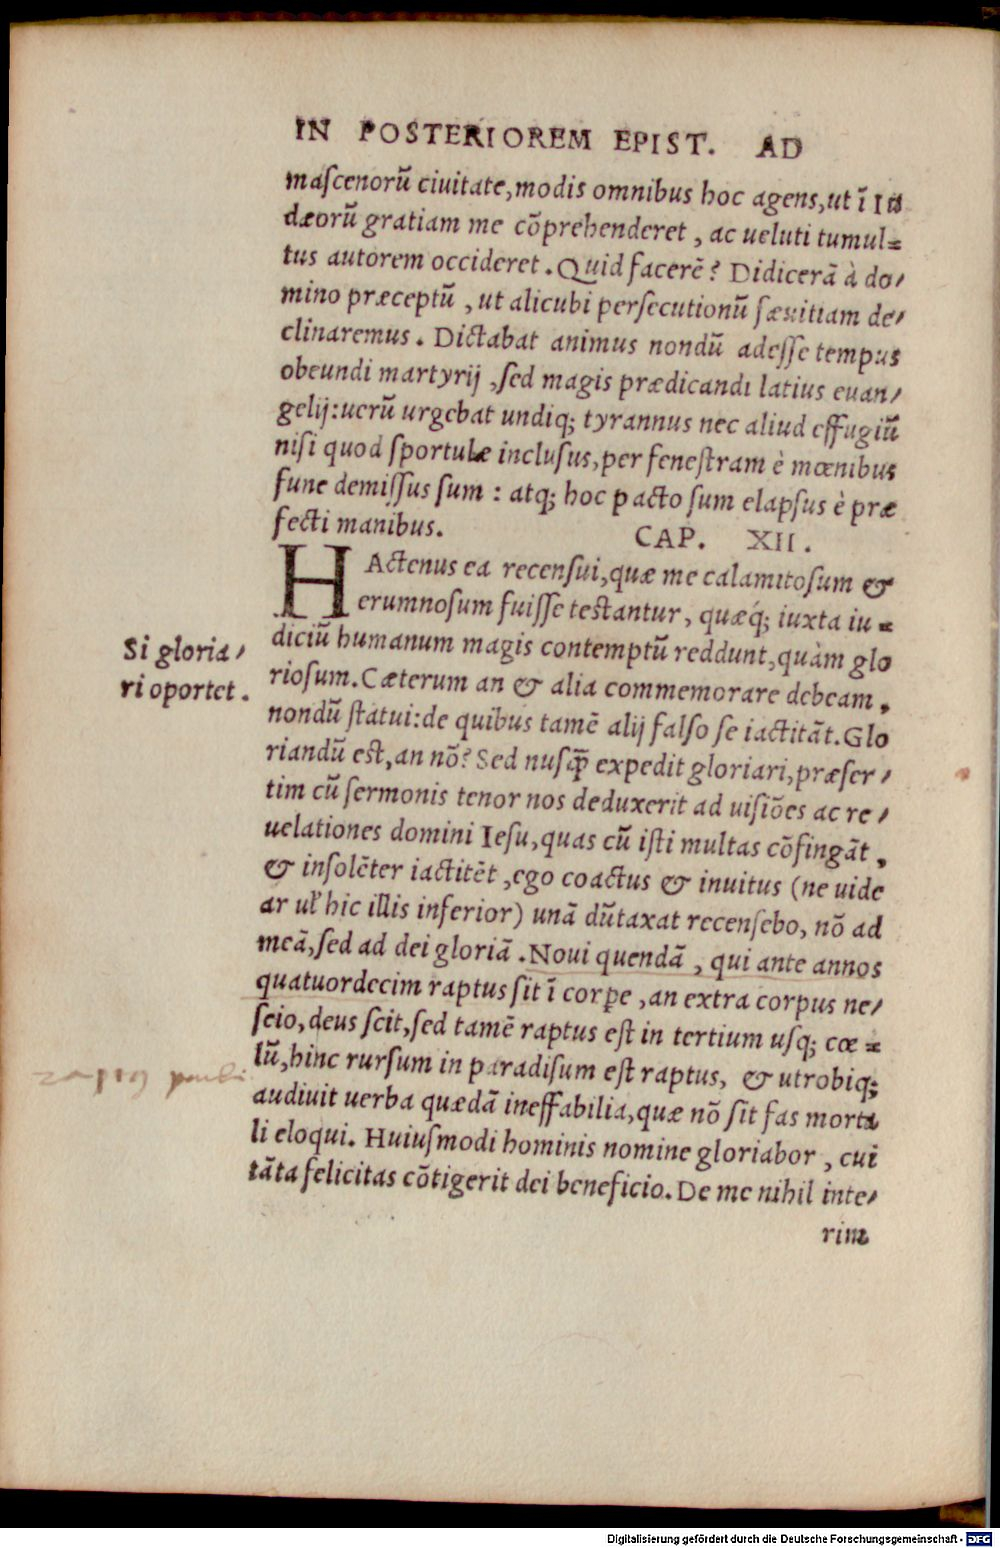 IN POSTERIOREM EPIST. AD
maſcenorū ciuitate,modis omnibus hoc agens,ut ī Iu
dæorū gratiam me cōprehenderet , ac ueluti tumul=
tus autorem occideret . Quid facerē? Didicerā à do/
mino præceptū , ut alicubi perſecutionū ſæuitiam de/
clinaremus . Dictabat animus nondū adeſſe tempus
obeundi martyrij ,ſed magis prædicandi latius euan/
gelij:uerū urgebat undiq; tyrannus nec aliud effugiū
niſi quod ſportulæ incluſus,per feneſtram è mœnibus
fune demiſſus ſum : atq; hoc pacto ſum elapſus è præ
fecti manibus.
CAP. XII.
HActenus ea recenſui,quæ me calamitoſum &
erumnoſum fuiſſe teſtantur, quæq́; iuxta iu=
Si gloria/
ri oportet .
diciū humanum magis contemptū reddunt,quàm glo
rioſum. Cæterum an & alia commemorare debeam ,
nondū ſtatui:de quibus tamē alij falſo ſe iactitāt. Glo
riandū eſt,an nō? Sed nuſq̄ expedit gloriari,præſer/
tim cū ſermonis tenor nos deduxerit ad uiſiōes ac re/
uelationes domini Ieſu,quas cū iſti multas cōfingāt ,
& inſolēter iactitēt ,ego coactus & inuitus (ne uide
ar ul̕ hic illis inferior) unā dūtaxat recenſebo, nō ad
meā,ſed ad dei gloriā . Noui quendā , qui ante annos
quatuordecim raptus ſit ī corꝑe ,an extra corpus ne/
ſcio,deus ſcit,ſed tamē raptus eſt in tertium uſq; cœ=
lū,hinc rurſum in paradiſum eſt raptus, & utrobiq;
raptꝰ pauli
audiuit uerba quædā ineffabilia,quæ nō ſit fas morta
li eloqui. Huiuſmodi hominis nomine gloriabor , cui
tāta felicitas cōtigerit dei beneficio. De me nihil inte/
rim
Digitalisierung gefördert durch die Deutsche Forschungsgemeinschaft - DFG